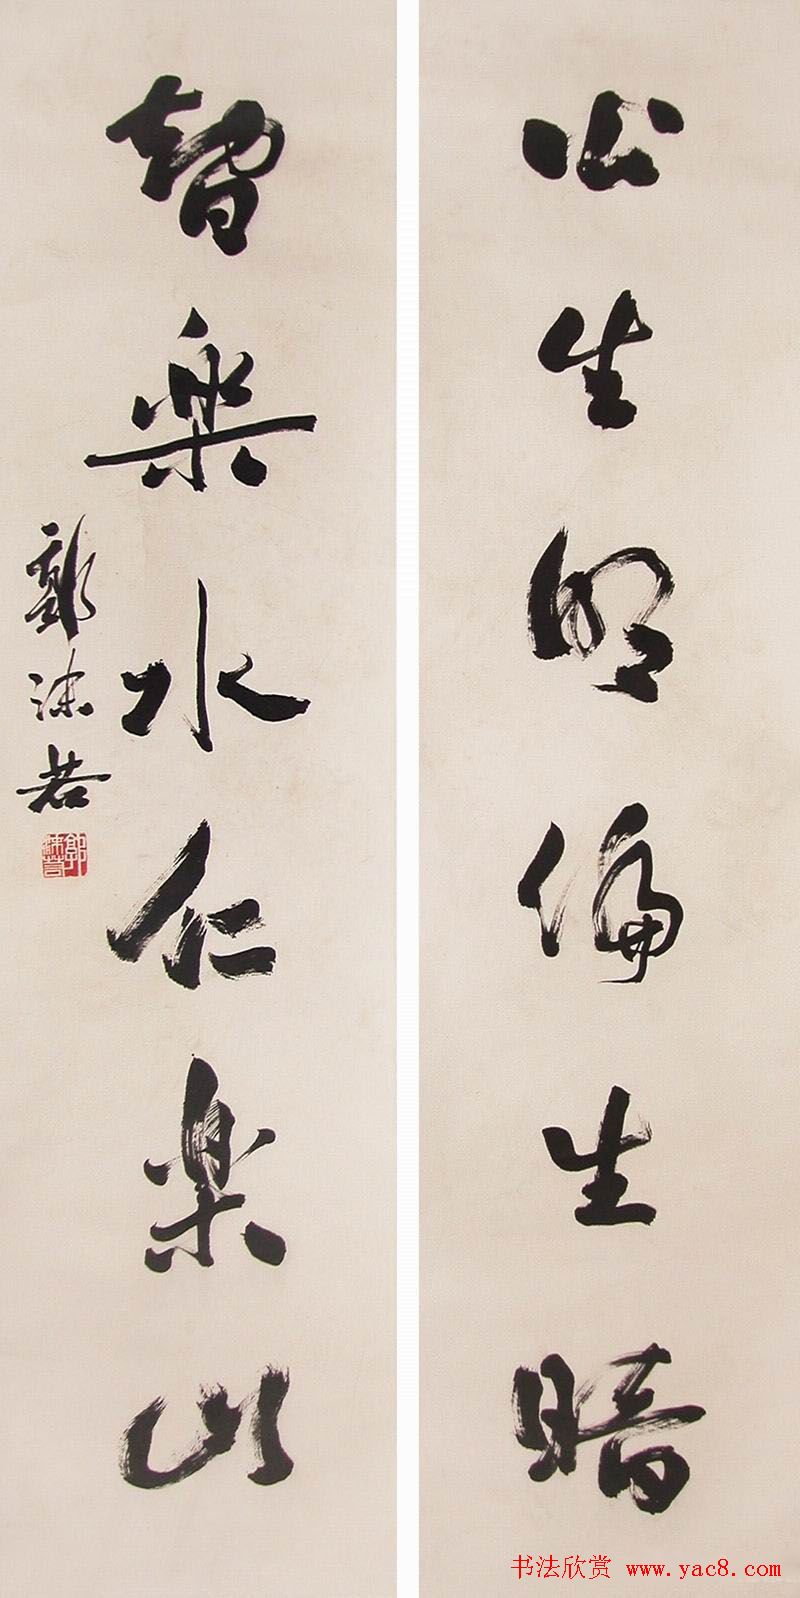 公生明偏生暗
智樂水仁樂山
郭沫若
郭沫若
书法欣赏 www.yac8.com